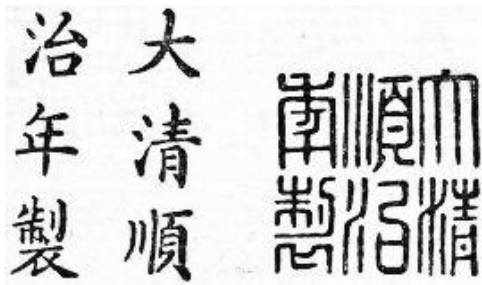 大清順
治年製
大清
順治
年製